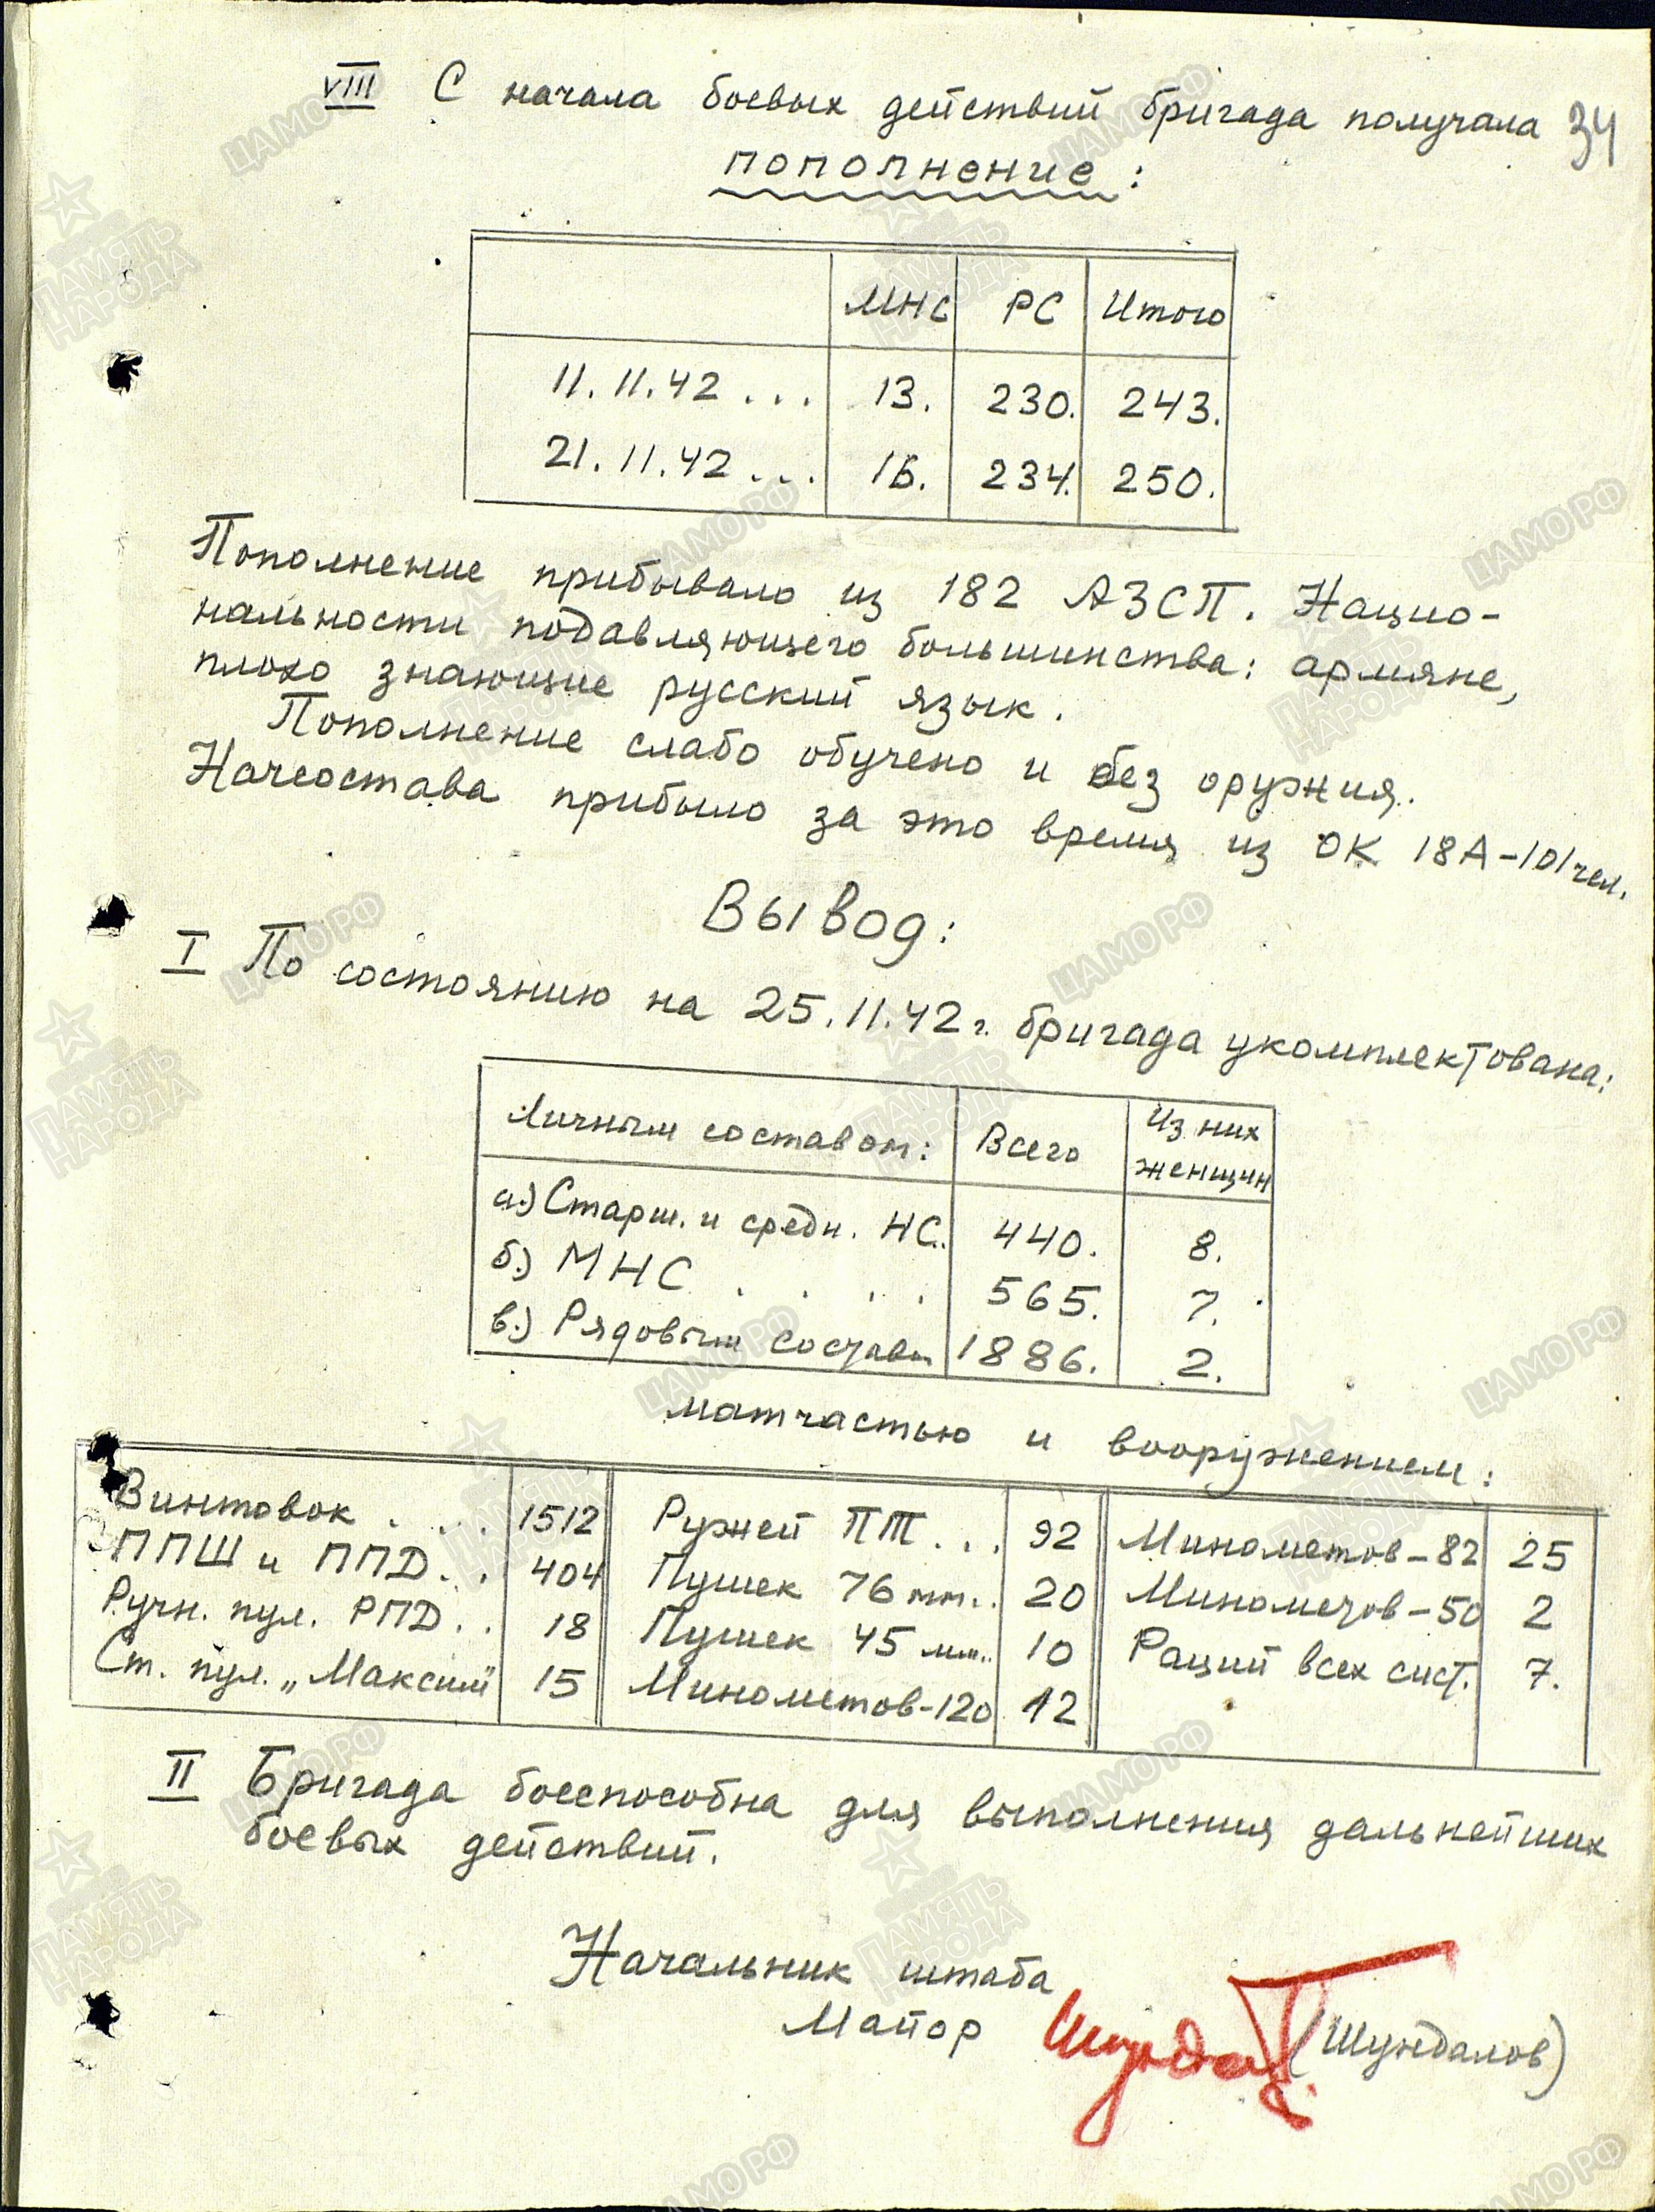 VIII С начала боевых действий бригада получала 34
пополнение:
МНС РС Итого
11.11.42 ... 13. 230. 243.
21.11.42 ... 16. 234. 250.
Пополнение прибывало из 182 АЗСП. Нацио-
нальности подавляющего большинства: армяне,
плохо знающие русский язык.
Пополнение слабо обучено и без оружия.
Начсостава прибыло за это время из ОК 18А-101чел.
Вывод:
I По состоянию на 25.11.42 г. бригада укомплектована:
Личным составом: Всего Из них
женщин
а.) Старш. и средн. НС. 440. 8.
б.) МНС . . . . 565. 7.
в.) Рядовым составом 1886. 2.
матчастью и вооружением:
Винтовок . . . . 1512 Ружей ПТ ... 92 Минометов-82 25
ППШ и ППД . . . 404 Пушек 76 мм.. 20 Минометов-50 2
Ручн. пул. РПД . . 18 Пушек 45 мм.. 10 Раций всех сист. 7.
Ст. пул. „Максим" 15 Минометов-120 12
II Бригада боеспособна для выполнения дальнейших
боевых действий.
Начальник штаба
Майор (Шундалов)
ЦАМО РФ
ПАМЯТЬ
НАРОДА